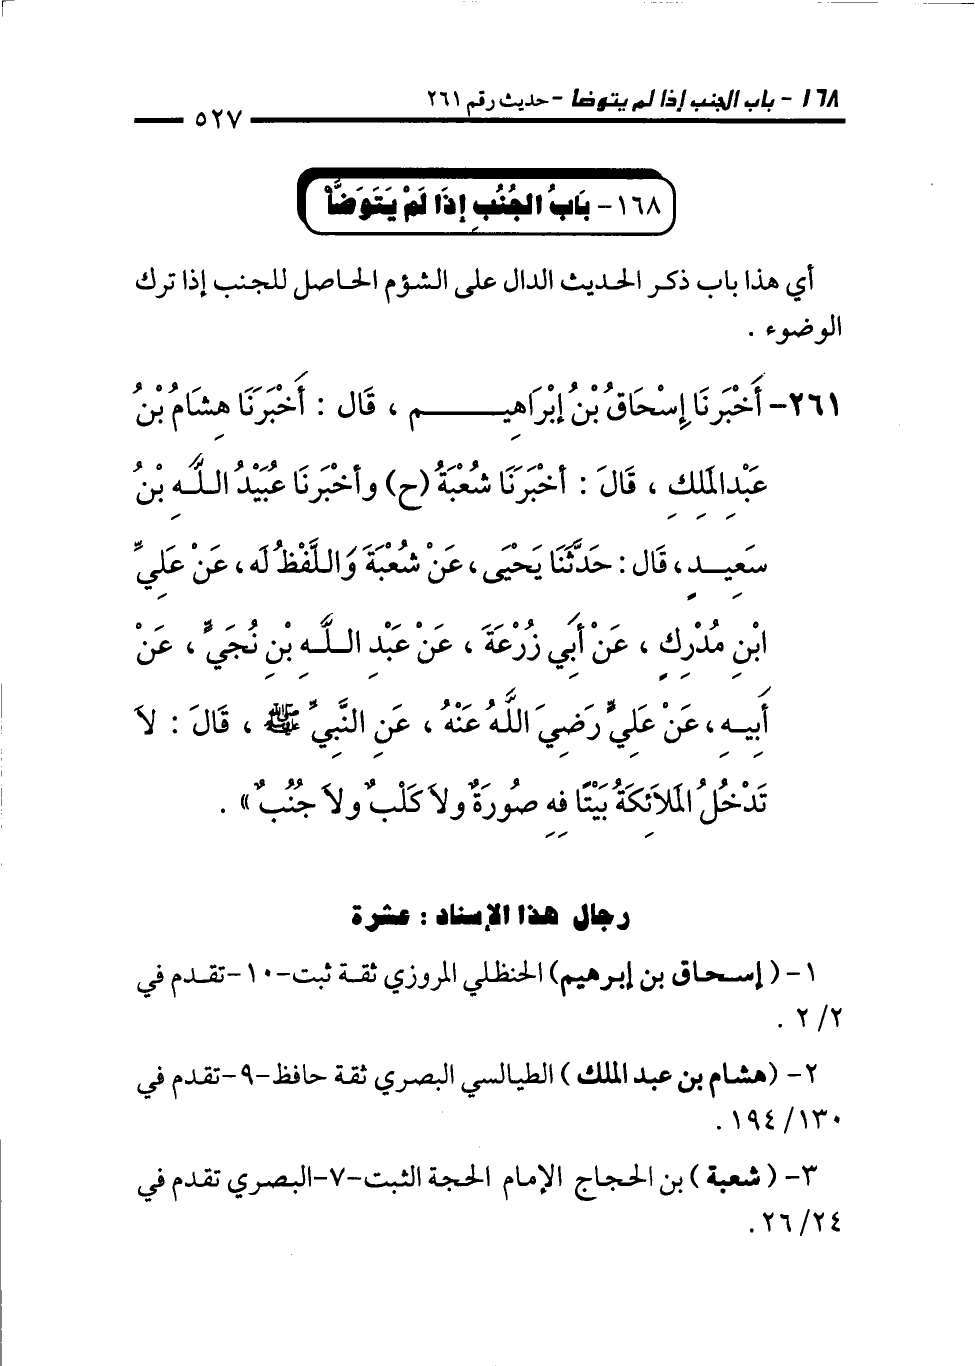 ١٦٨ - باب الجنب إذا لم يتوضأ - حديث رقم ٢٦١
٥٢٧
١٦٨- بَابُ الجُنُبِ إِذَا لَمْ يَتَوَضَّأْ
أي هذا باب ذكر الحديث الدال على الشؤم الحاصل للجنب إذا ترك
الوضوء .
٢٦١- أَخْبَرَنَا إِسْحَاقُ بْنُ إِبْرَاهِيـــــــم ، قَال : أَخْبَرَنَا هِشَامُ بْنُ
عَبْدِ المَلِكِ ، قَالَ : أخْبَرَنَا شُعْبَةُ (ح) وأخْبَرنَا عُبَيْدُ اللَّهِ بْنُ
سَعِيــدٍ ، قَال : حَدَّثَنَا يَحْيَى ، عَنْ شُعْبَةَ وَاللَّفْظُ لَه ، عَنْ عَلِيِّ
ابْنِ مُدْرِكٍ ، عَنْ أَبِي زُرْعَةَ ، عَنْ عَبْدِ اللَّهِ بْنِ نُجَيٍّ ، عَنْ
أَبِيـهِ ، عَنْ عَلِيٍّ رَضِيَ اللَّهُ عَنْهُ ، عَنِ النَّبِيِّ ﷺ ، قَالَ : لاَ
تَدْخُلُ المَلاَئِكَةُ بَيْتًا فِهِ صُورَةٌ ولاَ كَلْبٌ ولاَ جُنُبٌ» .
رجال هذا الإسناد : عشرة
١- (إسحاق بن إبرهيم) الحنظلي المروزي ثقة ثبت-١٠-تقدم في
٢/ ٢ .
٢- (هشام بن عبد الملك) الطيالسي البصري ثقة حافظ-٩-تقدم في
١٣٠/ ١٩٤ .
٣- (شعبة) بن الحجاج الإمام الحجة الثبت-٧-البصري تقدم في
٢٤/ ٢٦ .